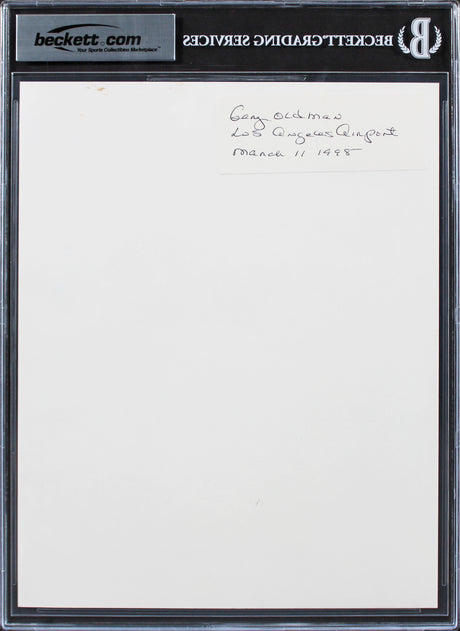 beckett.com
Your Sports Collectibles Marketplace™
BECKETT GRADING SERVICES
B
Gary Oldman
Los Angeles Airport
March 11 1998